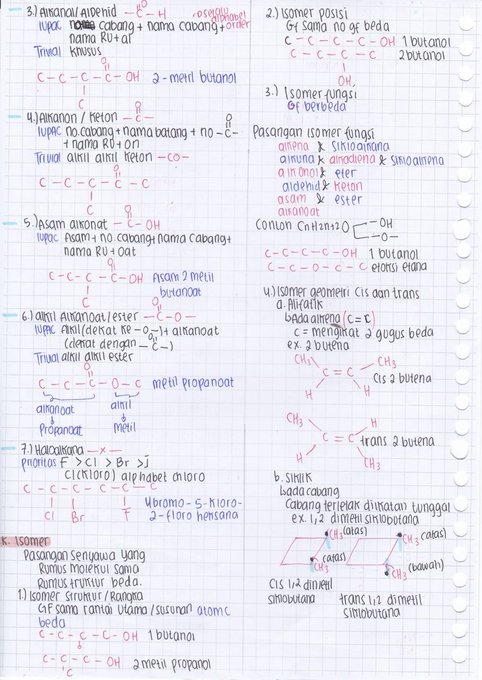 3.) Alkanal/Aldehid -C-H
O
selalu alphabet order
Iupac nama cabang + nama cabang +
nama RU + al
Trivial khusus
O
C - C - C - C - OH 2-metil butanol
C
4.) Alkanon / Keton -C-
O
Iupac no.cabang + nama batang + no -C-
O
+ nama RU + on
Trivial alkil alkil keton -CO-
O
C - C - C - C - C
C
5.) Asam alkonat -C-OH
O
Iupac Asam + no. cabang + nama cabang +
nama RU + oat
O
C - C - C - C - OH Asam 2 metil
C butanoat
6.) alkil Alkanoat / ester -C-O-
O
Iupac Alkil (dekat ke -O-) + alkanoat
(dekat dengan -C-)
O
Trivial alkil alkil ester
O
C - C - C - O - C metil propanoat
alkanoat alkil
Propanoat metil
7.) Haloalkana -x-
prioritas F > Cl > Br > I
Cl (Kloro) alphabet chloro
C - C - C - C - C - C
Cl Br F
4 bromo - 5 - kloro -
2 - floro heksana
K. Isomer
Pasangan senyawa yang
Rumus molekul sama
Rumus truktur beda.
1.) Isomer struktur / Rangka
GF sama rantai utama / susunan atom C
beda
C - C - C - C - OH 1 butanol
C - C - C - OH 2 metil propanol
C
2.) Isomer posisi
Gf sama no gf beda
C - C - C - C - OH 1 butanol
C - C - C - C 2 butanol
OH
3.) Isomer fungsi
Gf berbeda
Pasangan isomer fungsi
alkena & sikloalkana
alkuna & alkadiena & sikloalkena
alkanol & eter
aldehid & keton
asam & ester
alkanoat
Contoh CnH2n+2O -OH
-O-
C - C - C - C - OH 1 butanol
C - C - O - C - C etoksi etana
4.) Isomer geometri cis dan trans
a. Alifatik
Ada alkena (C = C)
C = mengikat 2 gugus beda
ex. 2 butena
CH3 CH3
C = C Cis 2 butena
H H
CH3 H
C = C trans 2 butena
H CH3
b. Siklik
ada cabang
Cabang terletak diikatan tunggal
ex. 1,2 dimetil siklobutana
CH3 (atas) CH3 (atas)
CH3 (atas) CH3 (bawah)
Cis 1,2 dimetil
siklobutana
trans 1,2 dimetil
siklobutana